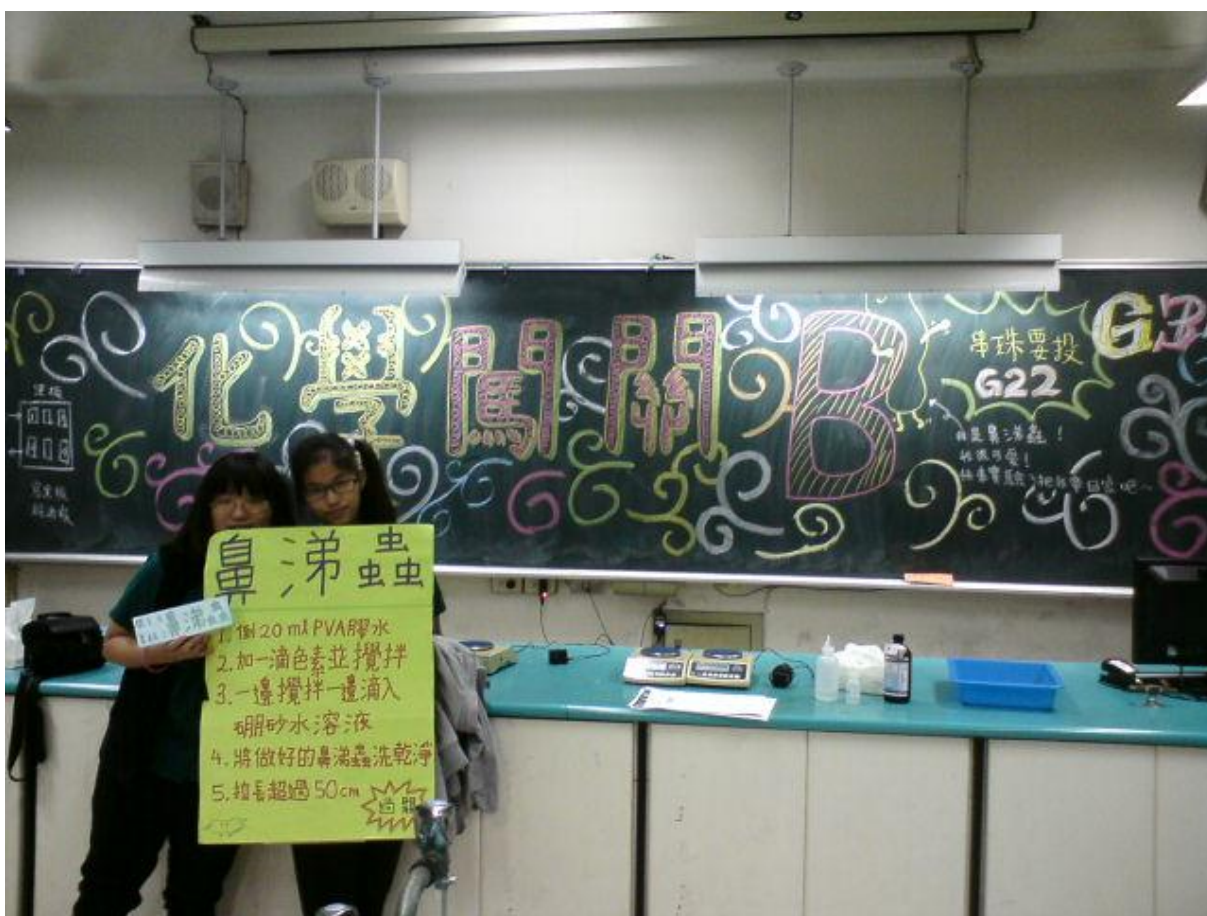 化學闖關B
串珠要投
G22
G3
我是鼻涕蟲！
我很可愛！
做完實驗，把我帶回家吧～
黑板
鼻涕蟲
1. 倒20ml PVA膠水
2. 加一滴色素並攪拌
3. 一邊攪拌一邊滴入
硼砂水溶液
4. 將做好的鼻涕蟲洗乾淨
5. 拉長超過50cm
過關
鼻涕蟲